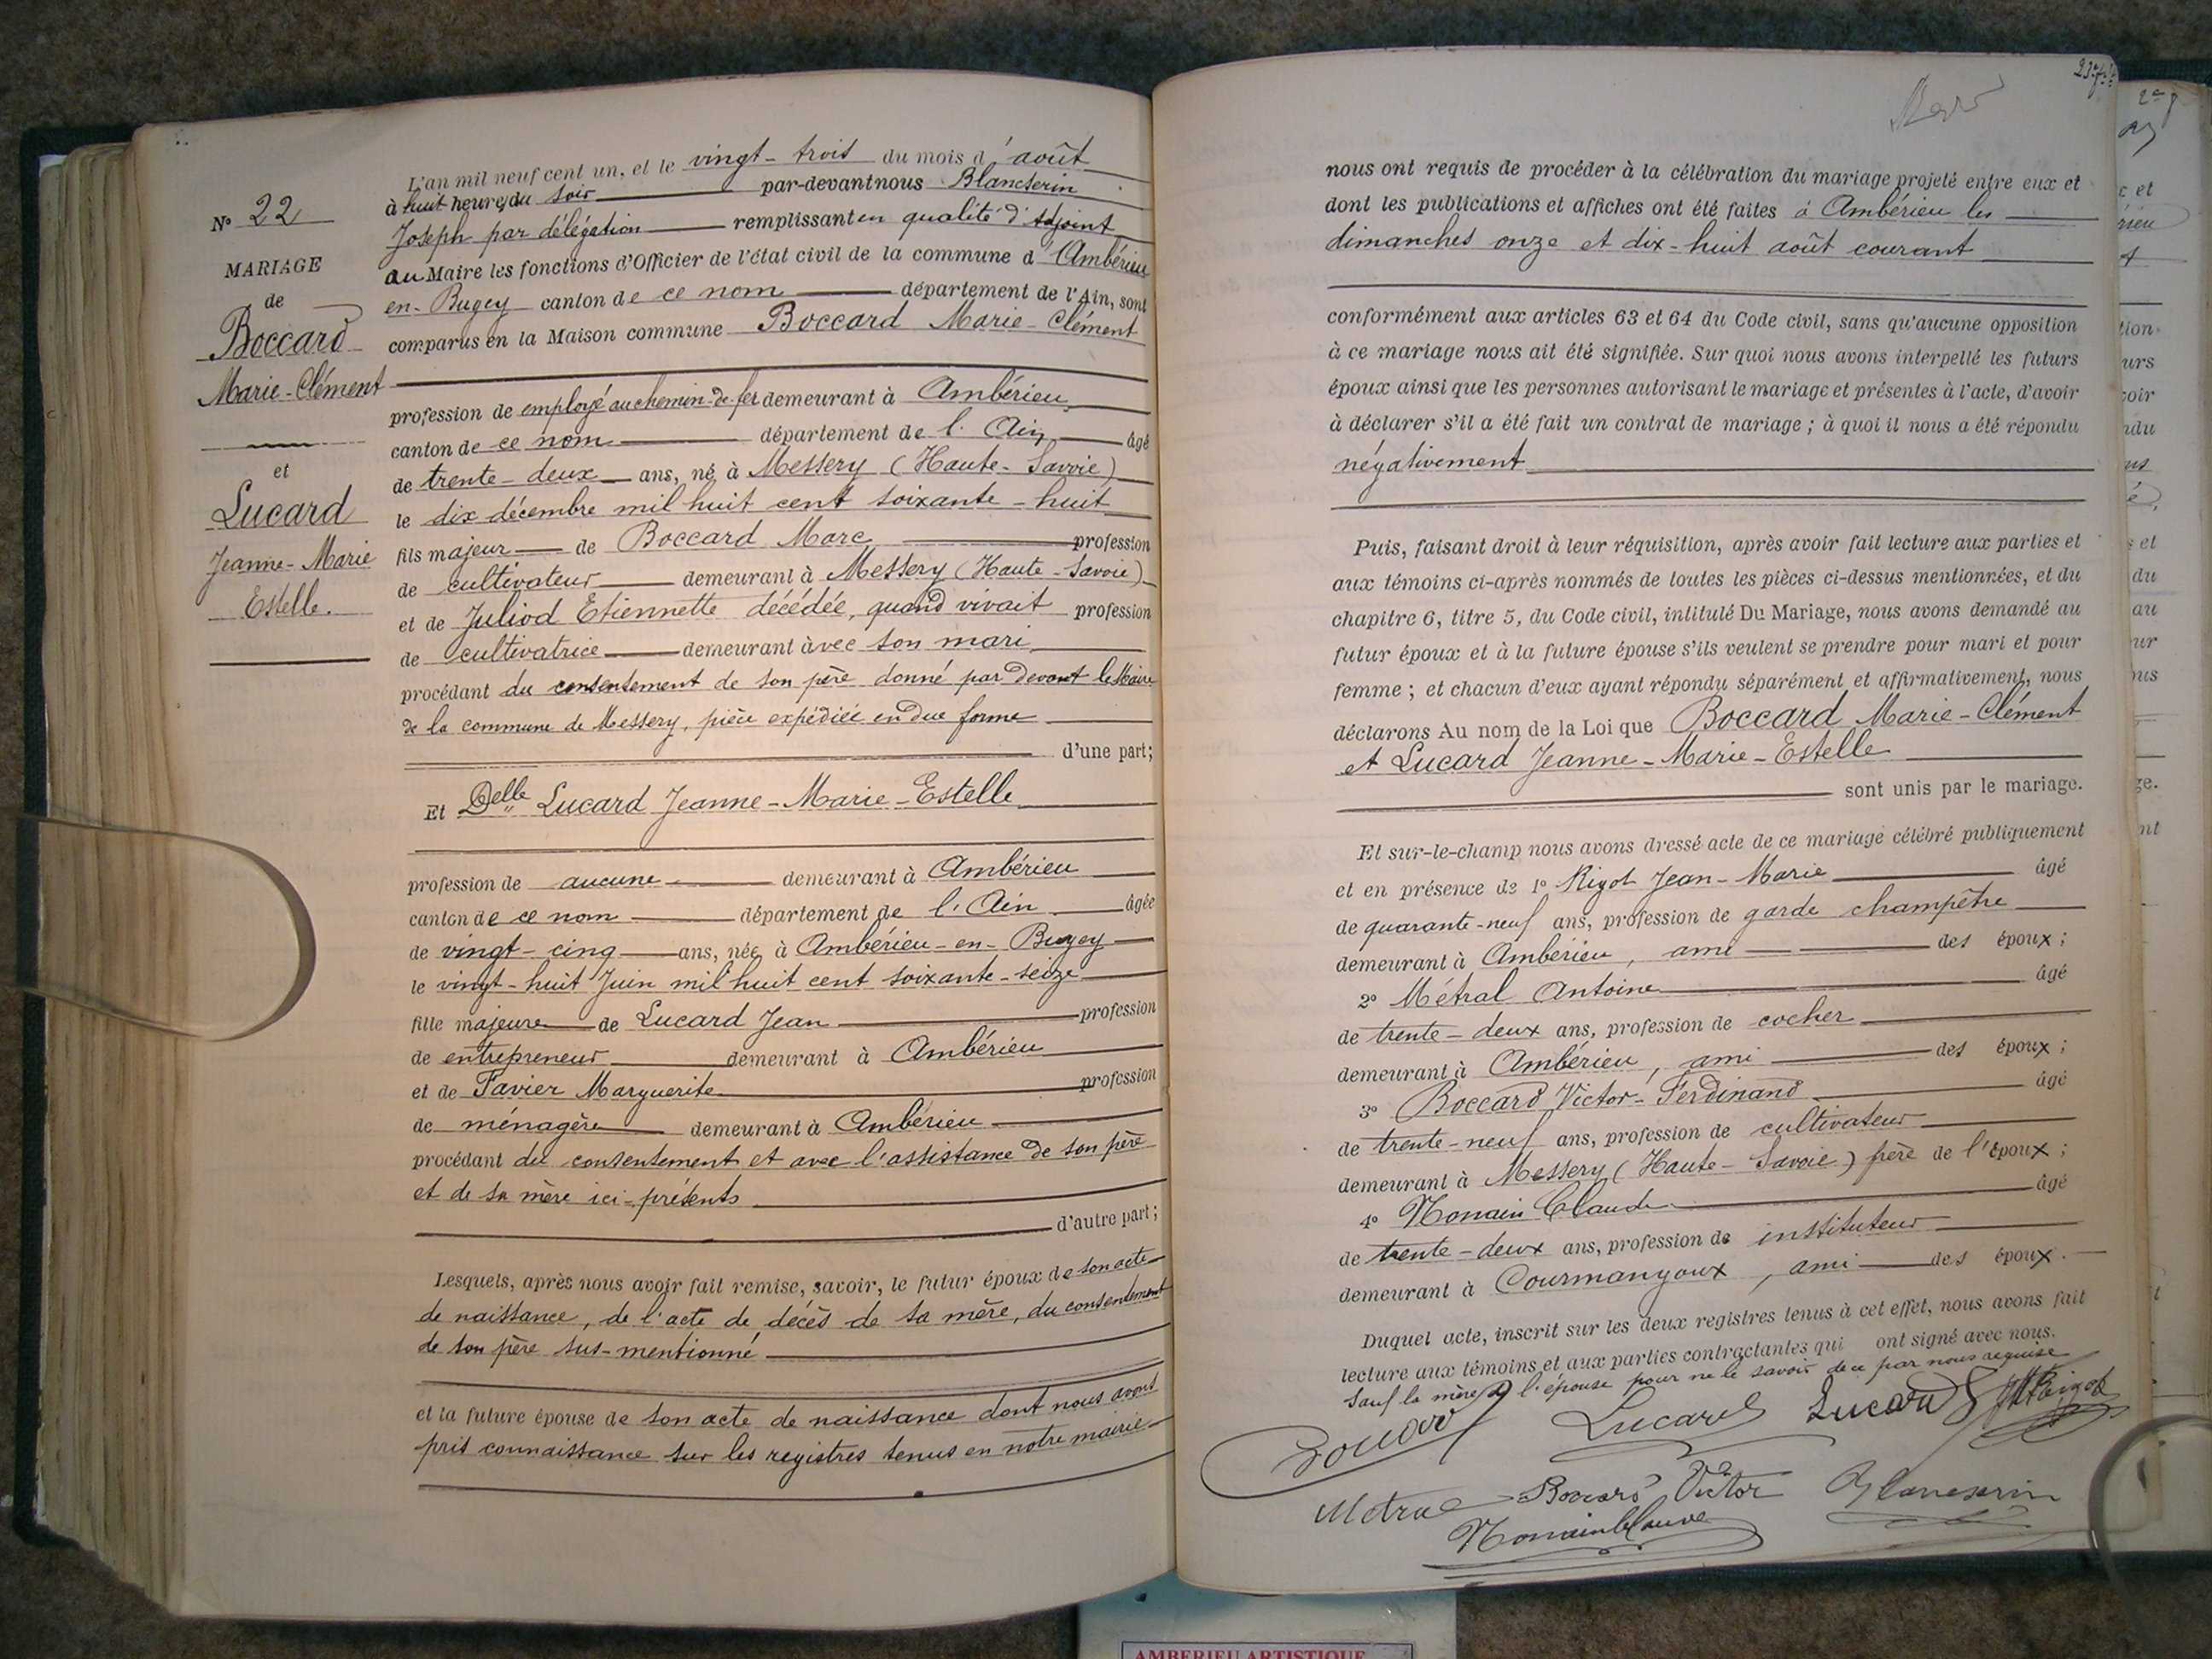 N° 22
MARIAGE
de
Boccard
Marie-Clément
et
Lucard
Jeanne-Marie
Estelle.
L'an mil neuf cent un, et le vingt-trois du mois d'août
à huit heures du soir par-devant nous Blancserin
Joseph par délégation remplissant en qualité d'Adjoint
au Maire les fonctions d'Officier de l'état civil de la commune d'Ambérieu
en-Bugey canton de ce nom département de l'Ain, sont
comparus en la Maison commune Boccard Marie-Clément
profession de employé au chemin-de-fer demeurant à Ambérieu
canton de ce nom département de l'Ain âgé
de trente-deux ans, né à Messery (Haute-Savoie)
le dix décembre mil huit cent soixante-huit
fils majeur de Boccard Marc profession
de cultivateur demeurant à Messery (Haute-Savoie)
et de Juliod Etiennette décédée, quand vivait profession
de cultivatrice demeurant avec son mari
procédant du consentement de son père donné par devant le Maire
de la commune de Messery, pièce expédiée en due forme
d'une part;
Et Delle Lucard Jeanne-Marie-Estelle
profession de aucune demeurant à Ambérieu
canton de ce nom département de l'Ain âgée
de vingt-cinq ans, née à Ambérieu-en-Bugey
le vingt-huit Juin mil huit cent soixante-seize
fille majeure de Lucard Jean profession
de entrepreneur demeurant à Ambérieu
et de Favier Marguerite profession
de ménagère demeurant à Ambérieu
procédant du consentement et avec l'assistance de son père
et de sa mère ici-présents
d'autre part;
Lesquels, après nous avoir fait remise, savoir, le futur époux de son acte
de naissance, de l'acte de décès de sa mère, du consentement
de son père sus-mentionné
et la future épouse de son acte de naissance dont nous avons
pris connaissance sur les registres tenus en notre mairie
nous ont requis de procéder à la célébration du mariage projeté entre eux et
dont les publications et affiches ont été faites à Ambérieu les
dimanches onze et dix-huit août courant
conformément aux articles 63 et 64 du Code civil, sans qu'aucune opposition
à ce mariage nous ait été signifiée. Sur quoi nous avons interpellé les futurs
époux ainsi que les personnes autorisant le mariage et présentes à l'acte, d'avoir
à déclarer s'il a été fait un contrat de mariage; à quoi il nous a été répondu
négativement
Puis, faisant droit à leur réquisition, après avoir fait lecture aux parties et
aux témoins ci-après nommés de toutes les pièces ci-dessus mentionnées, et du
chapitre 6, titre 5, du Code civil, intitulé Du Mariage, nous avons demandé au
futur époux et à la future épouse s'ils veulent se prendre pour mari et pour
femme; et chacun d'eux ayant répondu séparément et affirmativement, nous
déclarons Au nom de la Loi que Boccard Marie-Clément
et Lucard Jeanne-Marie-Estelle
sont unis par le mariage.
Et sur-le-champ nous avons dressé acte de ce mariage célébré publiquement
et en présence de 1° Rigot Jean-Marie âgé
de quarante-neuf ans, profession de garde champêtre
demeurant à Ambérieu, ami des époux;
2° Métral Antoine âgé
de trente-deux ans, profession de cocher
demeurant à Ambérieu, ami des époux;
3° Boccard Victor-Ferdinand âgé
de trente-neuf ans, profession de cultivateur
demeurant à Messery (Haute-Savoie) père de l'époux;
4° Monnain Claude âgé
de trente-deux ans, profession de instituteur
demeurant à Courmangoux, ami des époux.
Duquel acte, inscrit sur les deux registres tenus à cet effet, nous avons fait
lecture aux témoins et aux parties contractantes qui ont signé avec nous.
Sauf la mère de l'épouse pour ne le savoir de ce par nous requise
Lucard Lucard JM Rigot
Métral Boccard Victor Blancserin
Monnain Claude
AMBERIEU ARTISTIQUE